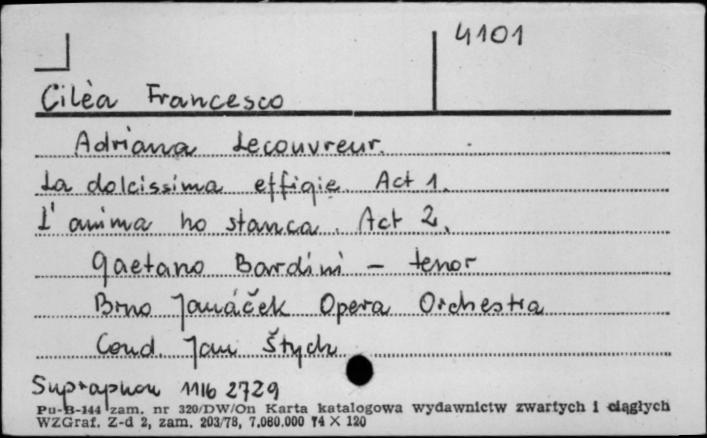 4101
Cilèa Francesco
Adriana Lecouvreur.
La dolcissima effigie Act 1.
L'anima ho stanca. Act 2.
Gaetano Bardini – tenor
Brno Janáček Opera Orchestra
Cond. Jan Štych
Supraphon 1116 2729
Pu-B-144 zam. nr 320/DW/On Karta katalogowa wydawnictw zwartych i ciągłych
WZGraf. Z-d 2, zam. 203/78, 7.080.000 74 X 120